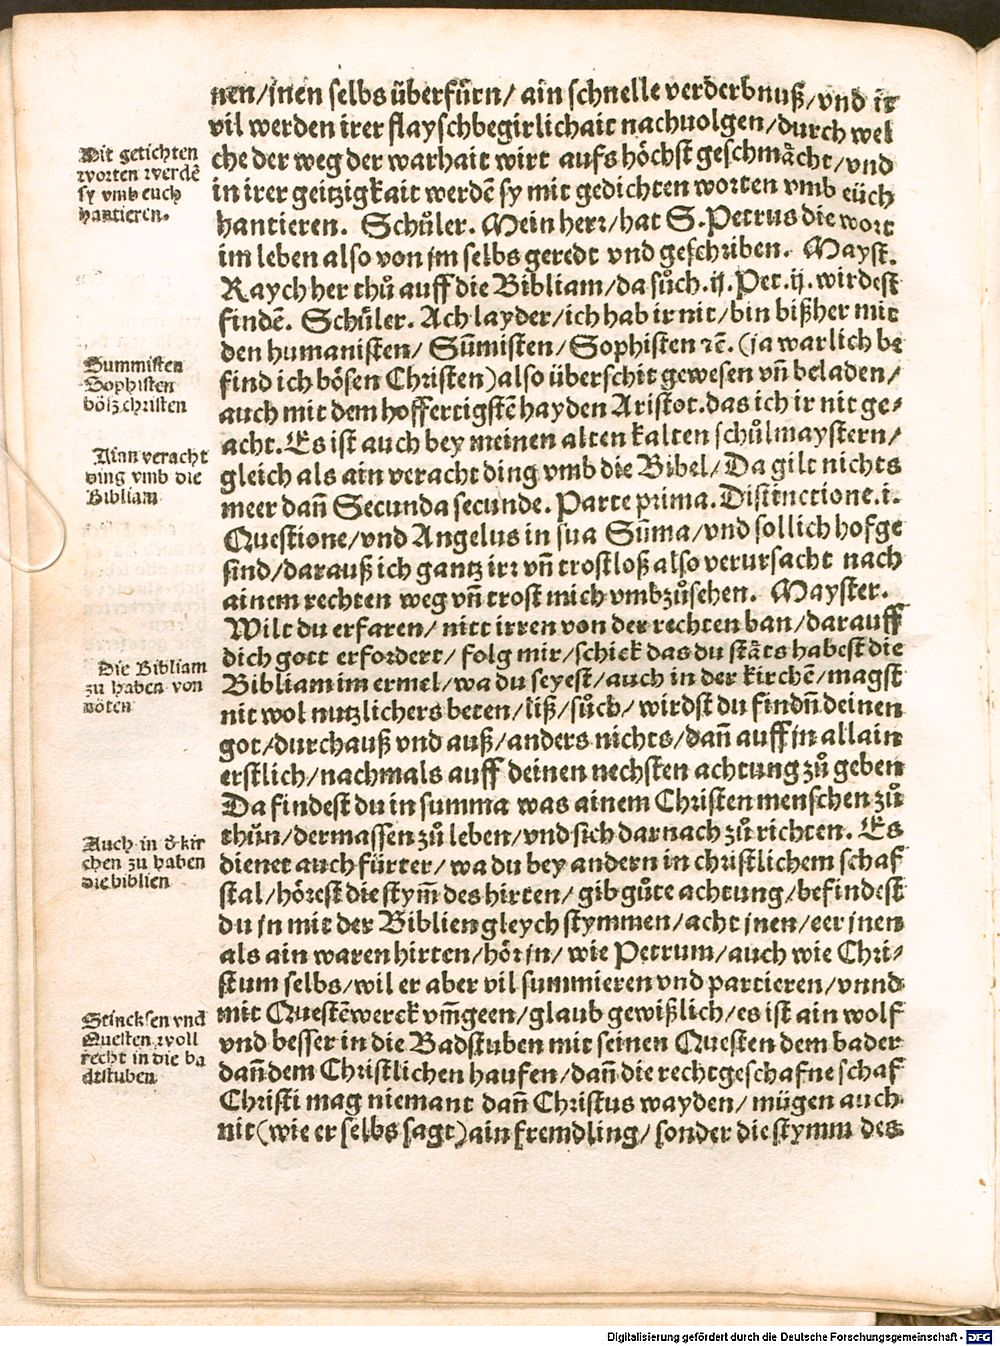 nen/jnen selbs überfürn/ ain schnelle verderbnuß/vnd ir
vil werden irer flayschbegirlichait nachuolgen/durch wel
che der weg der warhait wirt aufs höchst geschmächt/vnd
in irer geitzigkait werdẽ sy mit gedichten worten vmb eüch
hantieren. Schůler. Mein herr/hat S.Petrus die wort
im leben also von jm selbs geredt vnd geschriben. Mayst.
Raych her thů auff die Bibliam/da sůch.ij.Pet.ij.wirdest
findẽ. Schůler. Ach layder/ich hab ir nit/bin bißher mit
den humanisten/ Sũmisten/Sophisten ꝛc̃.(ja warlich be
find ich bösen Christen)also überschit gewesen vñ beladen/
auch mit dem hoffertigstẽ hayden Aristot.das ich ir nit ge⸗
acht.Es ist auch bey meinen alten kalten schůlmaystern/
gleich als ain veracht ding vmb die Bibel/Da gilt nichts
meer dañ Secunda secunde. Parte prima.Distinctione.i.
Questione/vnd Angelus in sua Sũma/vnd sollich hofge
sind/darauß ich gantz irr vñ trostloß also verursacht nach
ainem rechten weg vñ trost mich vmbzůsehen. Mayster.
Wilt du erfaren/ nitt irren von der rechten ban/darauff
dich gott erfordert/ folg mir/schick das du stäts habest die
Bibliam im ermel/wa du seyest/auch in der kirchẽ/magst
nit wol nutzlichers beten/liß/sůch/ wirdst du findñ deinen
got/durchauß vnd auß/anders nichts/dañ auff jn allain
erstlich/nachmals auff deinen nechsten achtung zů geben
Da findest du in summa was ainem Christen menschen zů
thůn/dermassen zů leben/vnd sich darnach zů richten. Es
dienet auch fürter/wa du bey andern in christlichem schaf
stal/hörest die stym̃ des hirten/ gib gůte achtung/befindest
du jn mit der Biblien gleych stymmen/acht jnen/eer jnen
als ain waren hirten/hör jn/ wie Petrum/auch wie Chri⸗
stum selbs/wil er aber vil summieren vnd partieren/vnnd
mit Questẽwerck vm̃geen/glaub gewißlich/es ist ain wolf
vnd besser in die Badstuben mit seinen Questen dem bader
dañ dem Christlichen haufen/dañ die rechtgeschafne schaf
Christi mag niemant dañ Christus wayden/mügen auch
nit(wie er selbs sagt)ain fremdling/sonder die stymm des
Mit getichten
worten werdẽ
sy vmb euch
hantieren.
Summisten
Sophisten
bösz christen
Man veracht
ding vmb die
Bibliam
Die Bibliam
zu haben von
nöten
Auch in d̕ kir
chen zu haben
die biblien
Stincksen vnd
Questen woll
recht in die ba
dtstuben
Digitalisierung gefördert durch die Deutsche Forschungsgemeinschaft - DFG